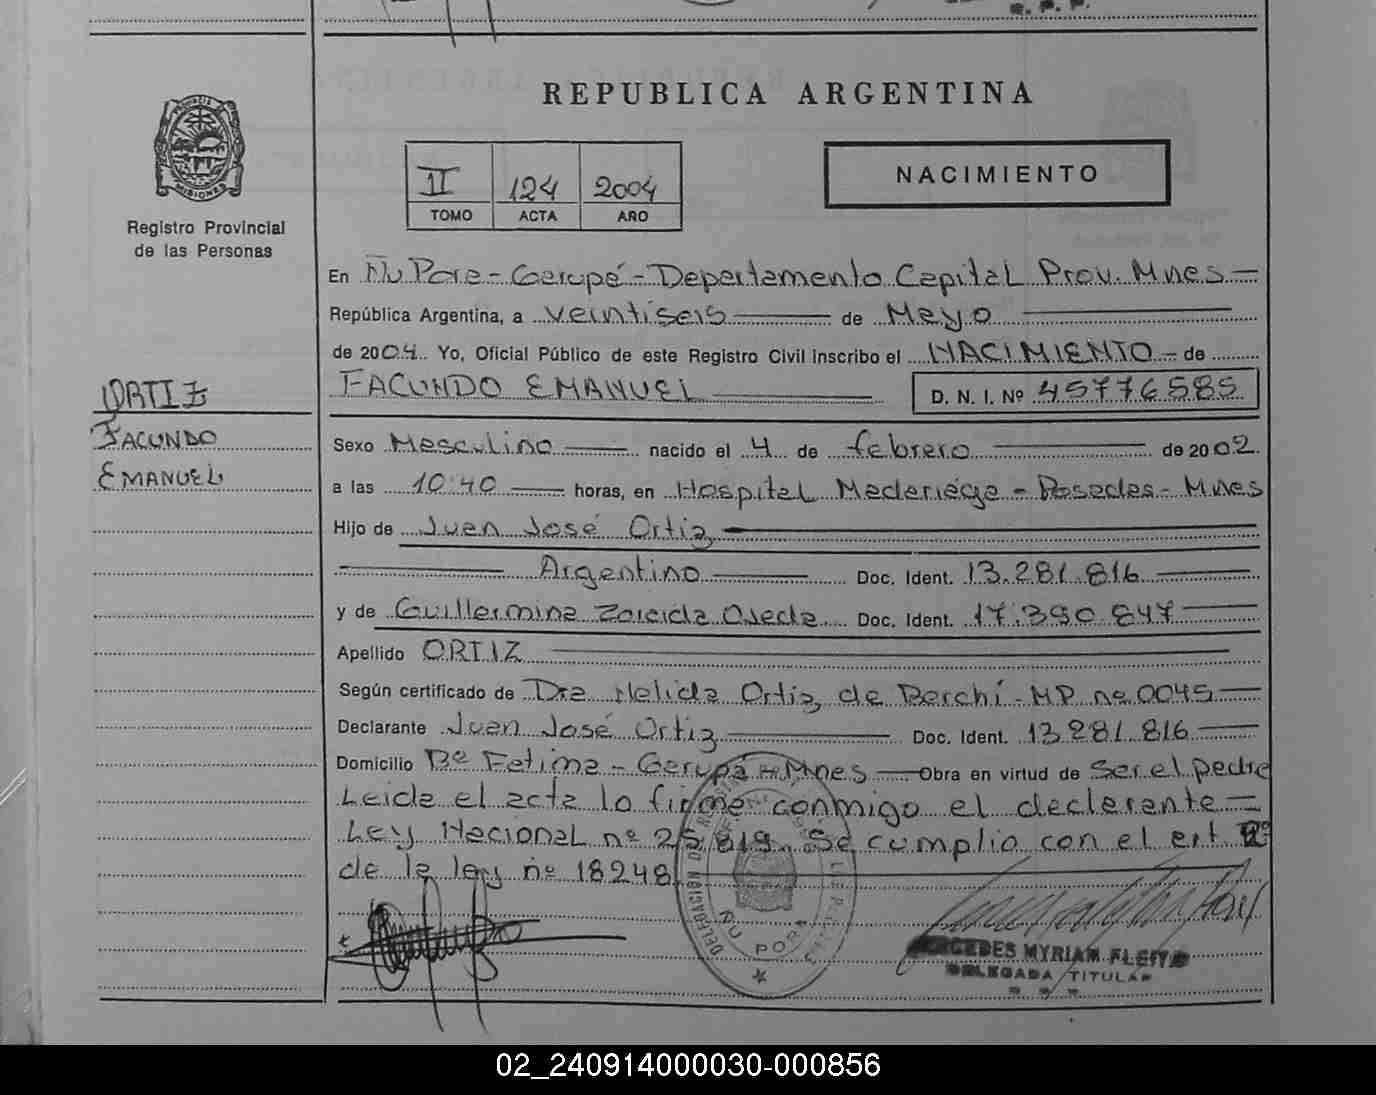 REPUBLICA ARGENTINA
PROVINCIA DE
MISIONES
Registro Provincial
de las Personas
II 124 2004
TOMO ACTA AÑO
NACIMIENTO
En Ñu Pora - Garupá - Departamento Capital Prov. Mnes -
República Argentina, a veintiseis de Mayo
de 2004. Yo, Oficial Público de este Registro Civil inscribo el NACIMIENTO - de
FACUNDO EMANUEL D. N. I. Nº 45776585
ORTIZ
FACUNDO
EMANUEL
Sexo Masculino nacido el 4 de febrero de 2002
a las 10:40 horas, en Hospital Madariaga - Posadas - Mnes
Hijo de Juan José Ortiz
Argentino Doc. Ident. 13.281.816
y de Guillermina Zoraida Ojeda Doc. Ident. 17.390.847
Apellido ORTIZ
Según certificado de Dra Nelida Ortiz de Berchi - MP nº 0045
Declarante Juan José Ortiz Doc. Ident. 13.281.816
Domicilio Bº Fatima - Garupá - Mnes Obra en virtud de ser el padre
Leida el acta la firma conmigo el declarante -
Ley Nacional nº 25.819. Se cumplio con el art.
de la ley nº 18248
DELEGACION
ÑU PORA
MERCEDES MYRIAM FLEITAS
DELEGADA TITULAR
02_240914000030-000856